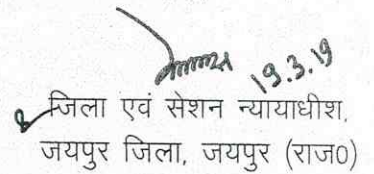 19.3.19
जिला एवं सेशन न्यायाधीश,
जयपुर जिला, जयपुर (राज0)